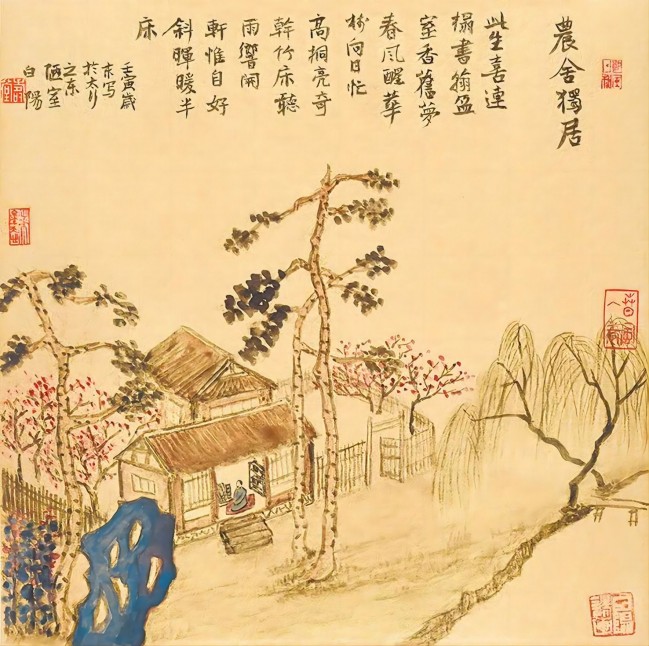 農舍獨居
此生喜連
榻書翰盈
室香舊夢
春风醒華
树向日忙
高桐亮奇
幹竹床聽
雨響開
軒惟自好
斜暉暖半
床
壬寅歲
末写
於太行
之东
陋室
白陽